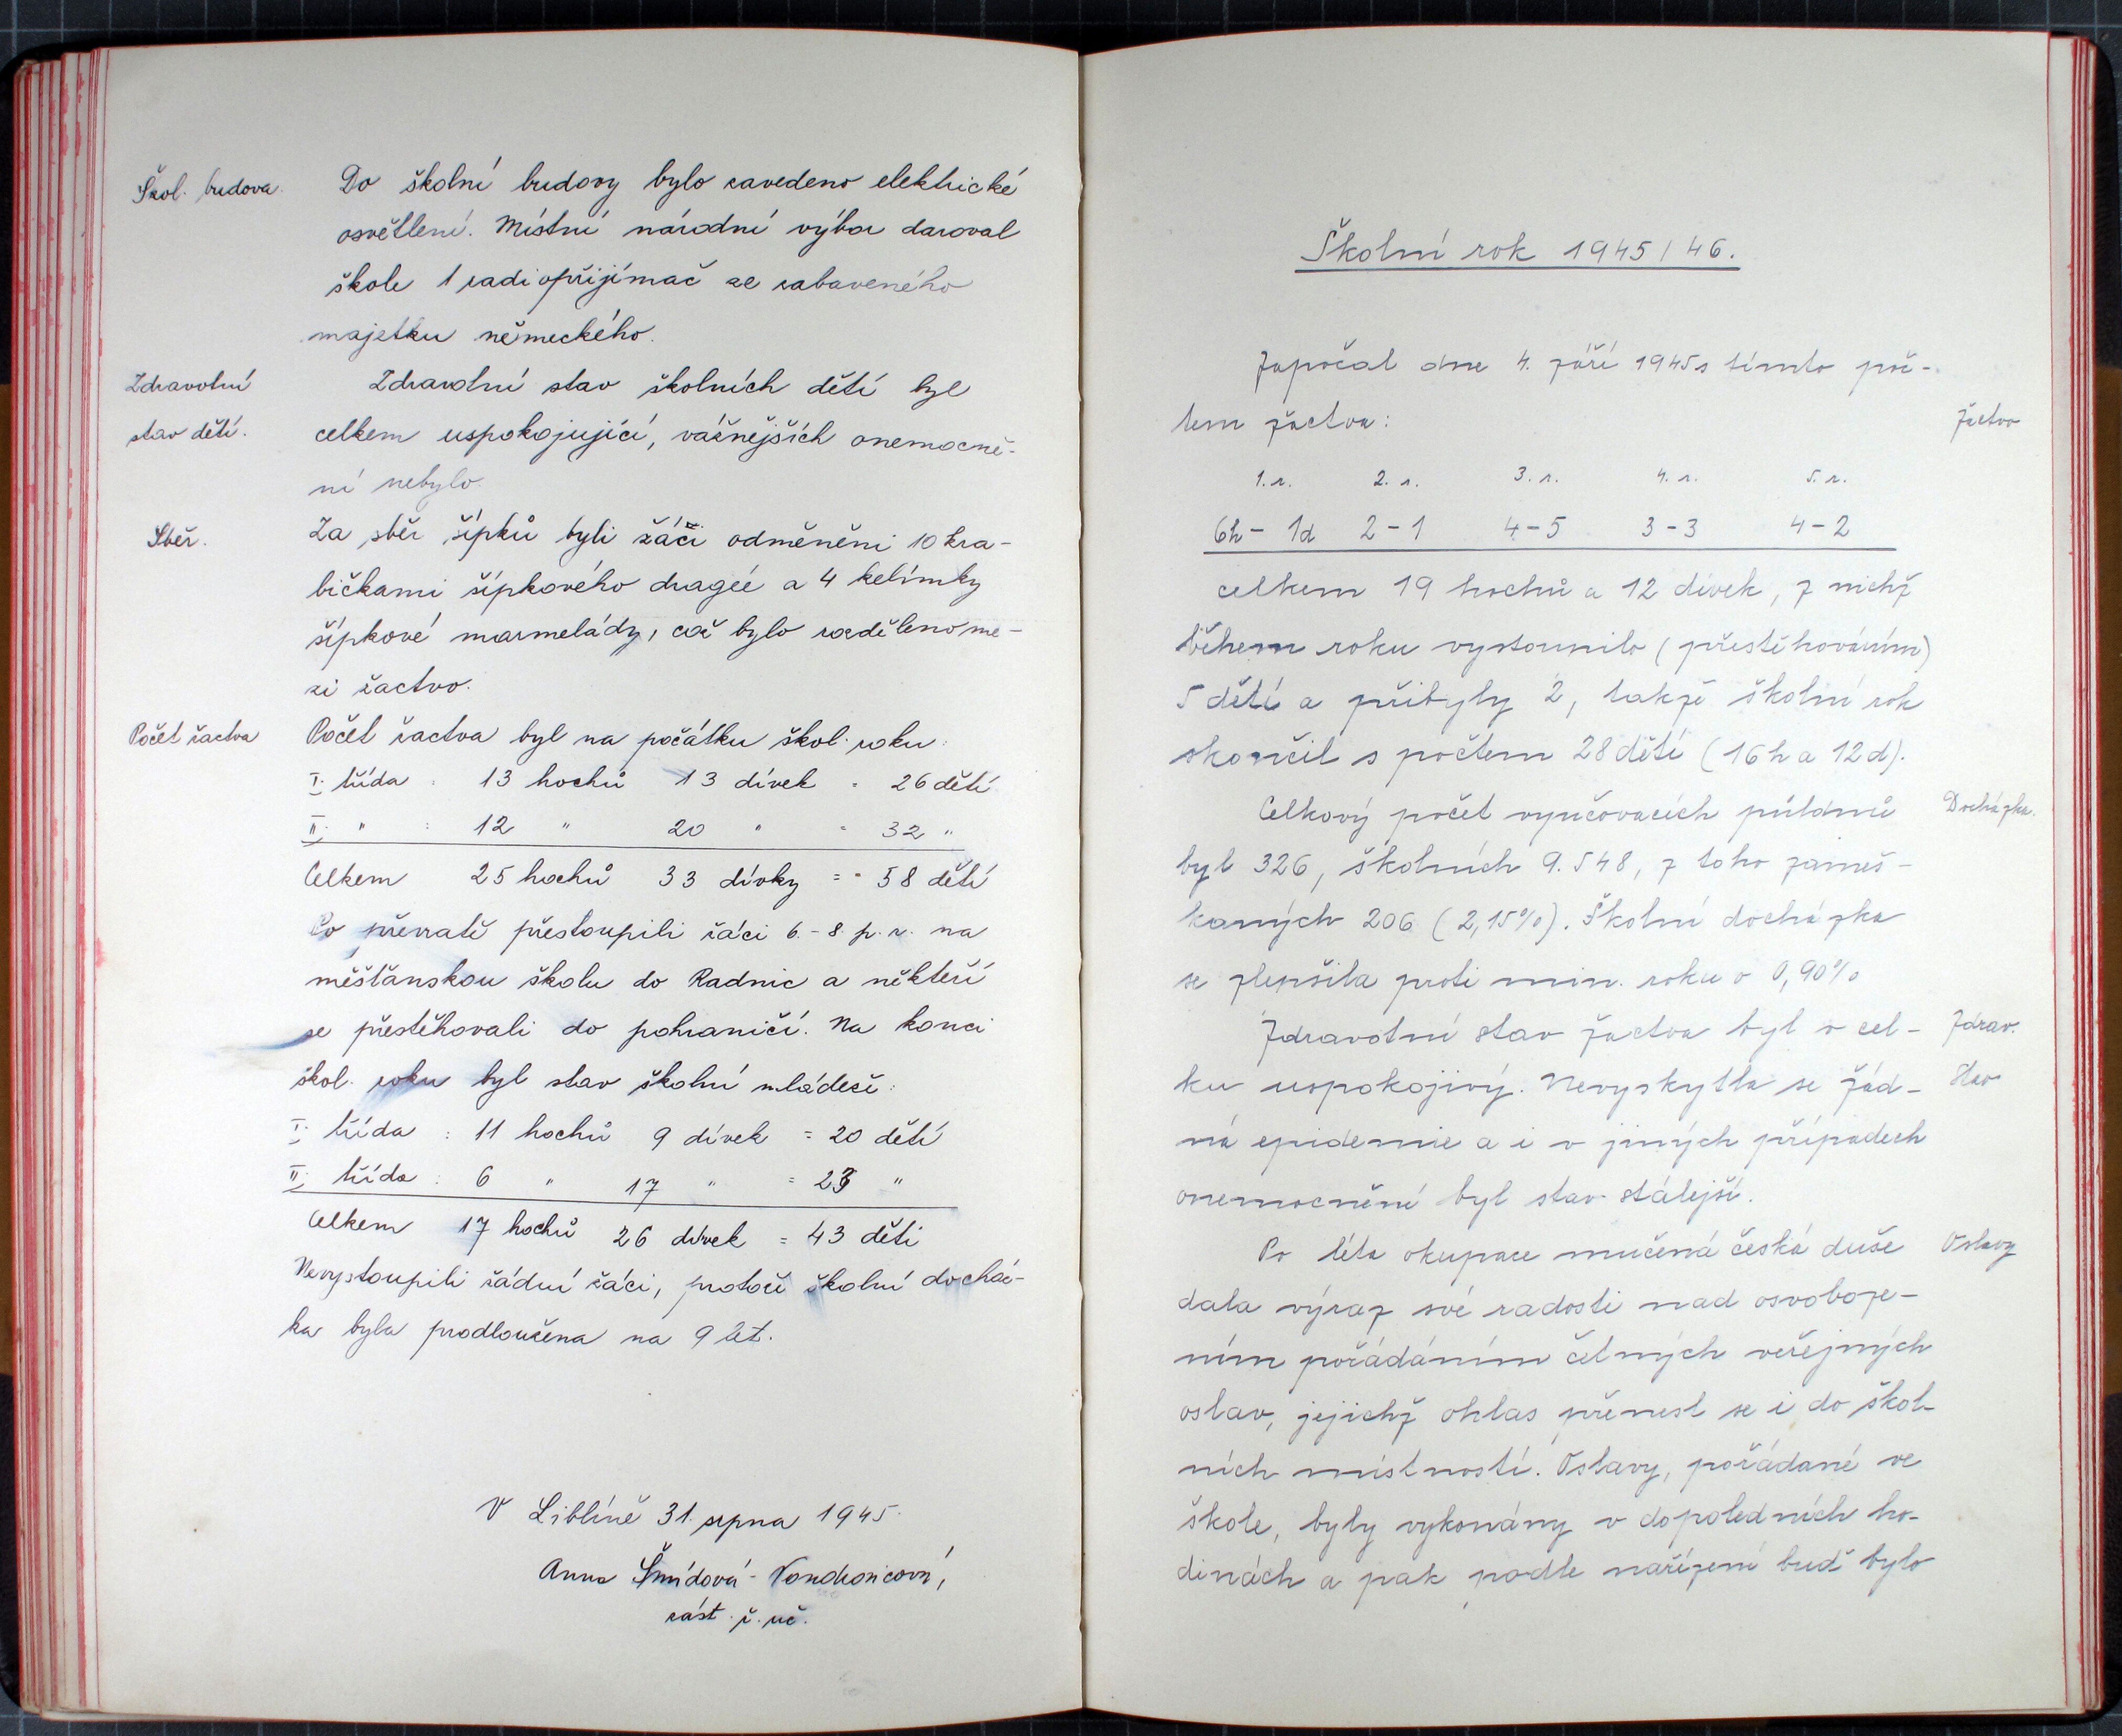 Škol. budova.
Do školní budovy bylo zavedeno elektrické
osvětlení. Místní národní výbor daroval
škole 1 radiopřijímač ze zabaveného
majetku německého.
Zdravotní
stav dětí.
Zdravotní stav školních dětí byl
celkem uspokojující, vážnějších onemocně-
ní nebylo.
Sběr.
Za sběr šípků byli žáci odměněni 10 kra-
bičkami šípkového drageé a 4 kelímky
šípkové marmelády, což bylo rozděleno me-
zi žactvo.
Počet žactva
Počet žactva byl na počátku škol. roku:
I. třída : 13 hochů 13 dívek = 26 dětí
II. " : 12 " 20 " = 32 "
Celkem 25 hochů 33 dívky = 58 dětí
Po převratě přestoupili žáci 6.-8. p. r. na
měšťanskou školu do Radnic a někteří
se přestěhovali do pohraničí. Na konci
škol. roku byl stav školní mládeže:
I. třída : 11 hochů 9 dívek = 20 dětí
II. třída : 6 " 17 " = 23 "
Celkem 17 hochů 26 dívek = 43 dětí
Nevystoupili žádní žáci, protože školní docház-
ka byla prodloužena na 9 let.
V Liblíně 31. srpna 1945.
Anna Šmídová - Vondrovicová,
zást. ř. uč.
Školní rok 1945/46.
Započal dne 4. září 1945 s tímto poč-
tem žactva:
Žactvo
1. r. 2. r. 3. r. 4. r. 5. r.
6h - 1d 2 - 1 4 - 5 3 - 3 4 - 2
celkem 19 hochů a 12 dívek, z nichž
během roku vystoupilo (přestěhováním)
5 dětí a přibyly 2, takže školní rok
skončil s počtem 28 dětí (16 h a 12 d).
Celkový počet vyučovacích půldnů
Docházka.
byl 326, školních 9.548, z toho zameš-
kaných 206 (2,15%). Školní docházka
se zlepšila proti min. roku o 0,90%
Zdravotní stav žactva byl v cel-
Zdrav.
ku uspokojivý. Nevyskytla se žád-
stav
ná epidemie a i v jiných případech
onemocnění byl stav stálejší.
Po léta okupace mučená česká duše
Oslavy
dala výraz své radosti nad osvoboze-
ním pořádáním četných veřejných
oslav, jejichž ohlas přenesl se i do škol-
ních místností. Oslavy, pořádané ve
škole, byly vykonány v dopoledních ho-
dinách a pak podle nařízení buď bylo